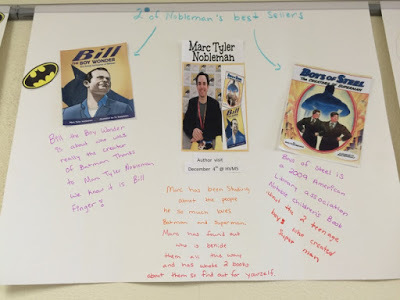 2 of Nobleman's best sellers
Bill
THE BOY WONDER
Marc Tyler
Nobleman
BOYS OF STEEL
THE CREATORS OF SUPERMAN
Author visit
December 4th @ HVMS
Bill the Boy Wonder
is about who was
really the creator
of Batman. Thanks
to Marc Tyler Nobleman
we know it is Bill
Finger!
Marc has been studing
about the people
he so much loves.
Batman and superman.
Marc has found out
who is behide
them all this way
and has wrote 2 books
about them so find out for yourself.
Boys of steel is
a 2009 American
Library association
Notable Children's Book
About the 2 teenage
boys who created
Super man